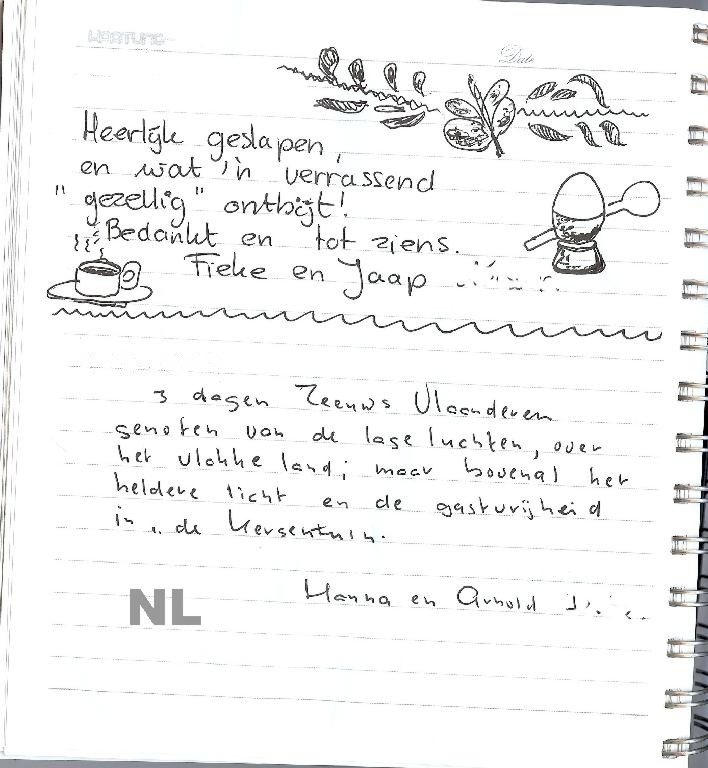 Date
Heerlijk geslapen,
en wat 'n verrassend
"gezellig" ontbijt!
Bedankt en tot ziens.
Fieke en Jaap
3 dagen Zeeuws Vlaanderen
genoten van de lage luchten, over
het vlakke land; maar bovenal het
heldere licht en de gastvrijheid
in „de Kersentuin.
Hanna en Arnold
NL